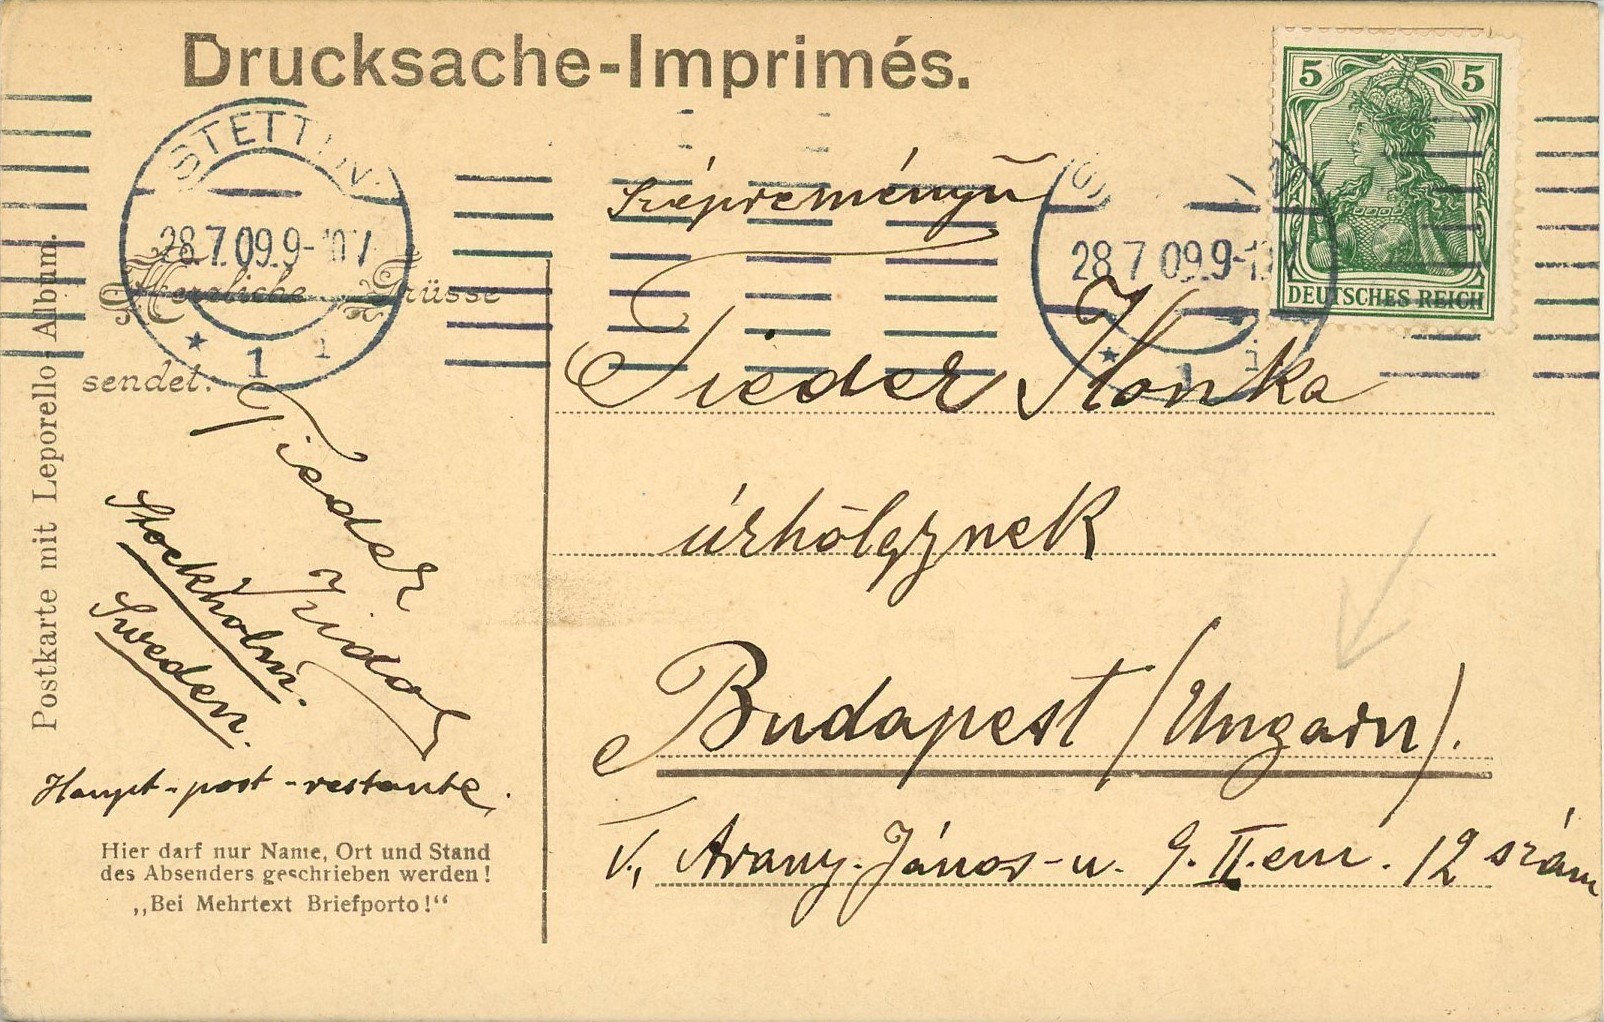 Drucksache-Imprimés.
5 5
DEUTSCHES REICH
STETTIN
28.7.09.9-10V
* 1 i
28 7 09.9-10V
* 1 i
Postkarte mit Leporello-Album.
Herzliche Grüsse
sendet:
Tieder
Stockholm.
Sweden.
Haupt-post-restante.
Hier darf nur Name, Ort und Stand
des Absenders geschrieben werden!
„Bei Mehrtext Briefporto!“
Szépreményű
Tieder Ilonka
úrhölgynek
Budapest (Ungarn).
V., Arany-János-u. 9. II. em. 12 szám